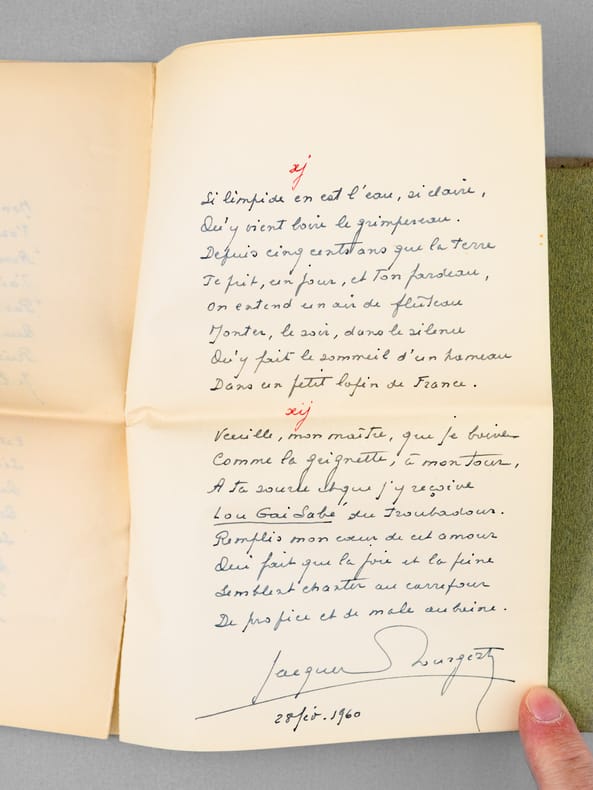 xj
Si limpide en est l'eau, si claire,
Qu'y vient boire le grimpereau.
Depuis cinq cents ans que la terre
Te prit, un jour, et Ton fardeau,
On entend un air de flûteau
Monter, le soir, dans le silence
Qu'y fait le sommeil d'un hameau
Dans un petit lopin de France.
xij
Veuille, mon maître, que je boive
Comme la geignette, à mon tour,
A ta source et que j'y reçoive
Lou Gai Sabé du Troubadour.
Remplis mon cœur de cet amour
Qui fait que la joie et la peine
Semblent chanter au carrefour
De propice et de male aubeine.
Jacques Bourgeat
28 fév. 1960